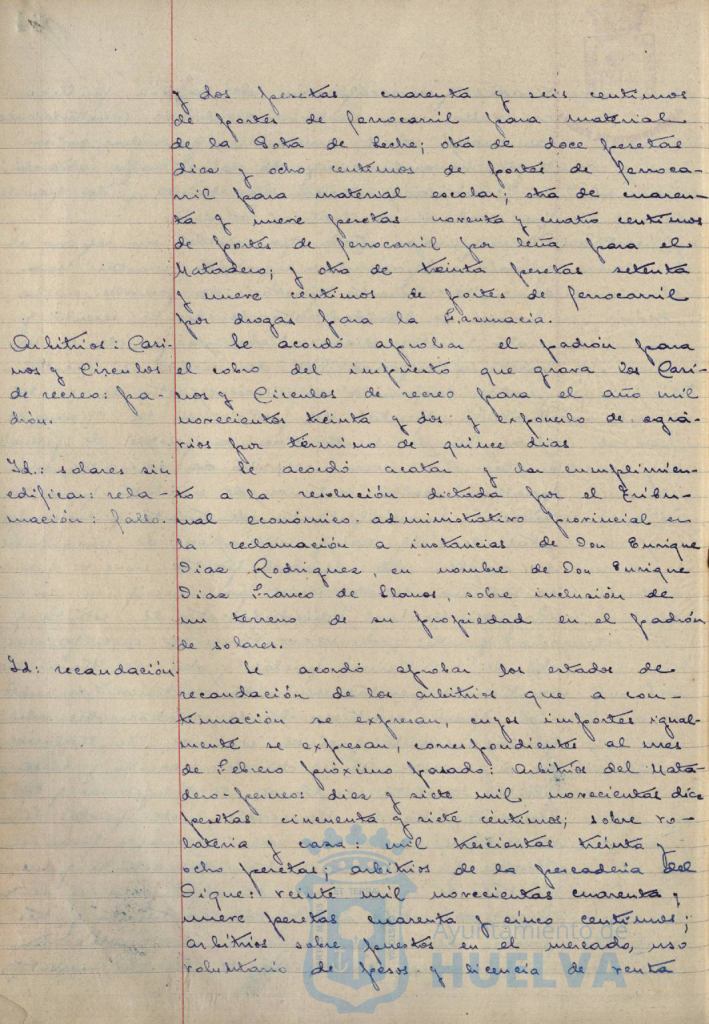 y dos pesetas cuarenta y seis centimos
de portes de ferrocarril para material
de la Gota de Leche; otra de doce pesetas
diez y ocho centimos de portes de ferroca-
rril para material escolar; otra de cuaren-
ta y nueve pesetas noventa y cuatro centimos
de portes de ferrocarril por leña para el
Matadero; y otra de treinta pesetas setenta
y nueve centimos de portes de ferrocarril
por drogas para la Farmacia.
Arbitrios: Casi-
nos y Circulos
de recreo: pa-
drón.
Se acordó aprobar el padrón para
el cobro del impuesto que grava los Casi-
nos y Circulos de recreo para el año mil
novecientos treinta y dos y exponerlo de agra-
vios por término de quince dias
Id.: solares sin
edificar: recla-
mación: fallo.
Se acordó acatar y dar cumplimien-
to a la resolución dictada por el Tribu-
nal económico-administrativo provincial en
la reclamación a instancias de Don Enrique
Diaz Rodriguez, en nombre de Don Enrique
Diaz Franco de Llanos, sobre inclusión de
un terreno de su propiedad en el padrón
de solares.
Id: recaudación.
Se acordó aprobar los estados de
recaudación de los arbitrios que a con-
tinuación se expresan, cuyos importes igual-
mente se expresan, correspondientes al mes
de Febrero próximo pasado: Arbitrios del Mata-
dero-perneo: diez y siete mil novecientas diez
pesetas cincuenta y siete centimos; sobre vo-
lateria y caza: mil trescientas treinta y
ocho pesetas; arbitrios de la pescaderia del
Dique: veinte mil novecientas cuarenta y
nueve pesetas cuarenta y cinco centimos;
arbitrios sobre puestos en el mercado, uso
voluntario de pesos y licencia de venta
Ayuntamiento de
HUELVA